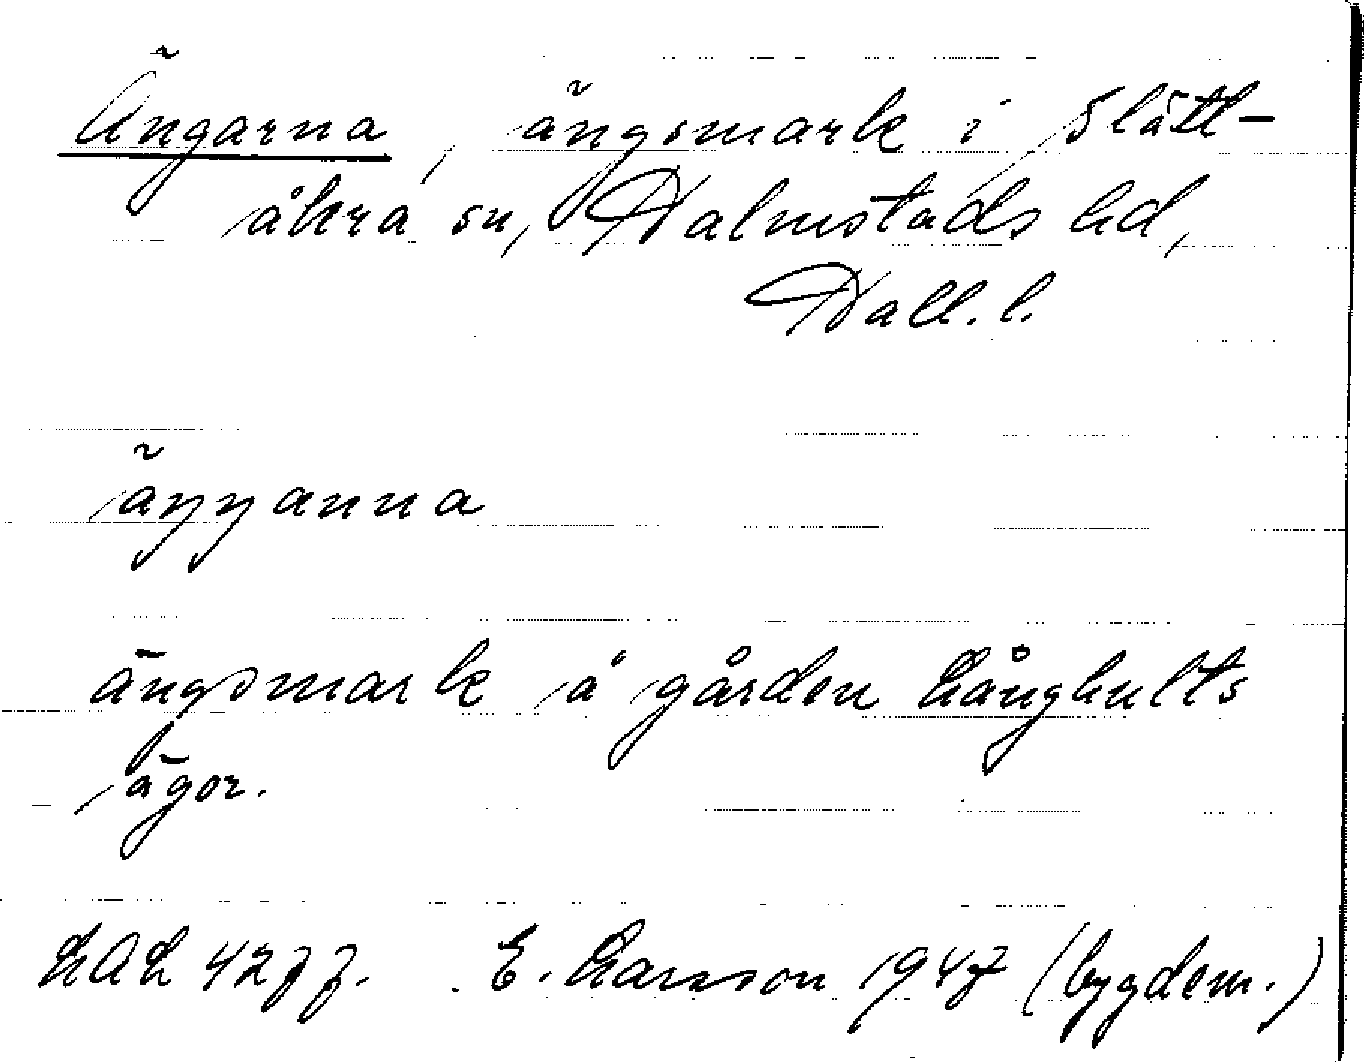 Ängarna, ängsmark i Slätt-
åkra sn, Halmstads hd,
Hall. l.
äŋŋanna
ängsmark å gården Långhults
ägor.
LAL 4277. E. Larsson 1947 (bygdem.)